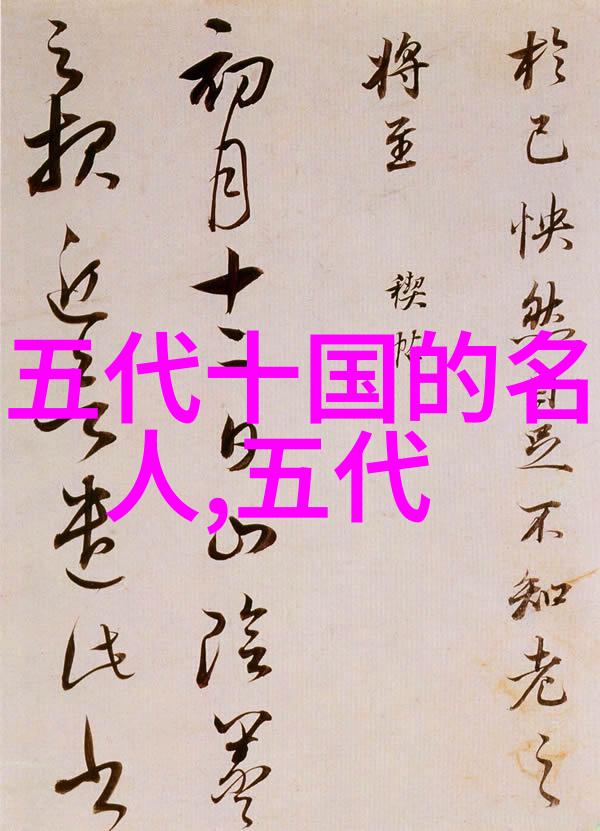 於己怏然自足不知老之
将至
禊帖
初月十二日山陰羲
之报近欲遣此书
五代十国的名
人,五代